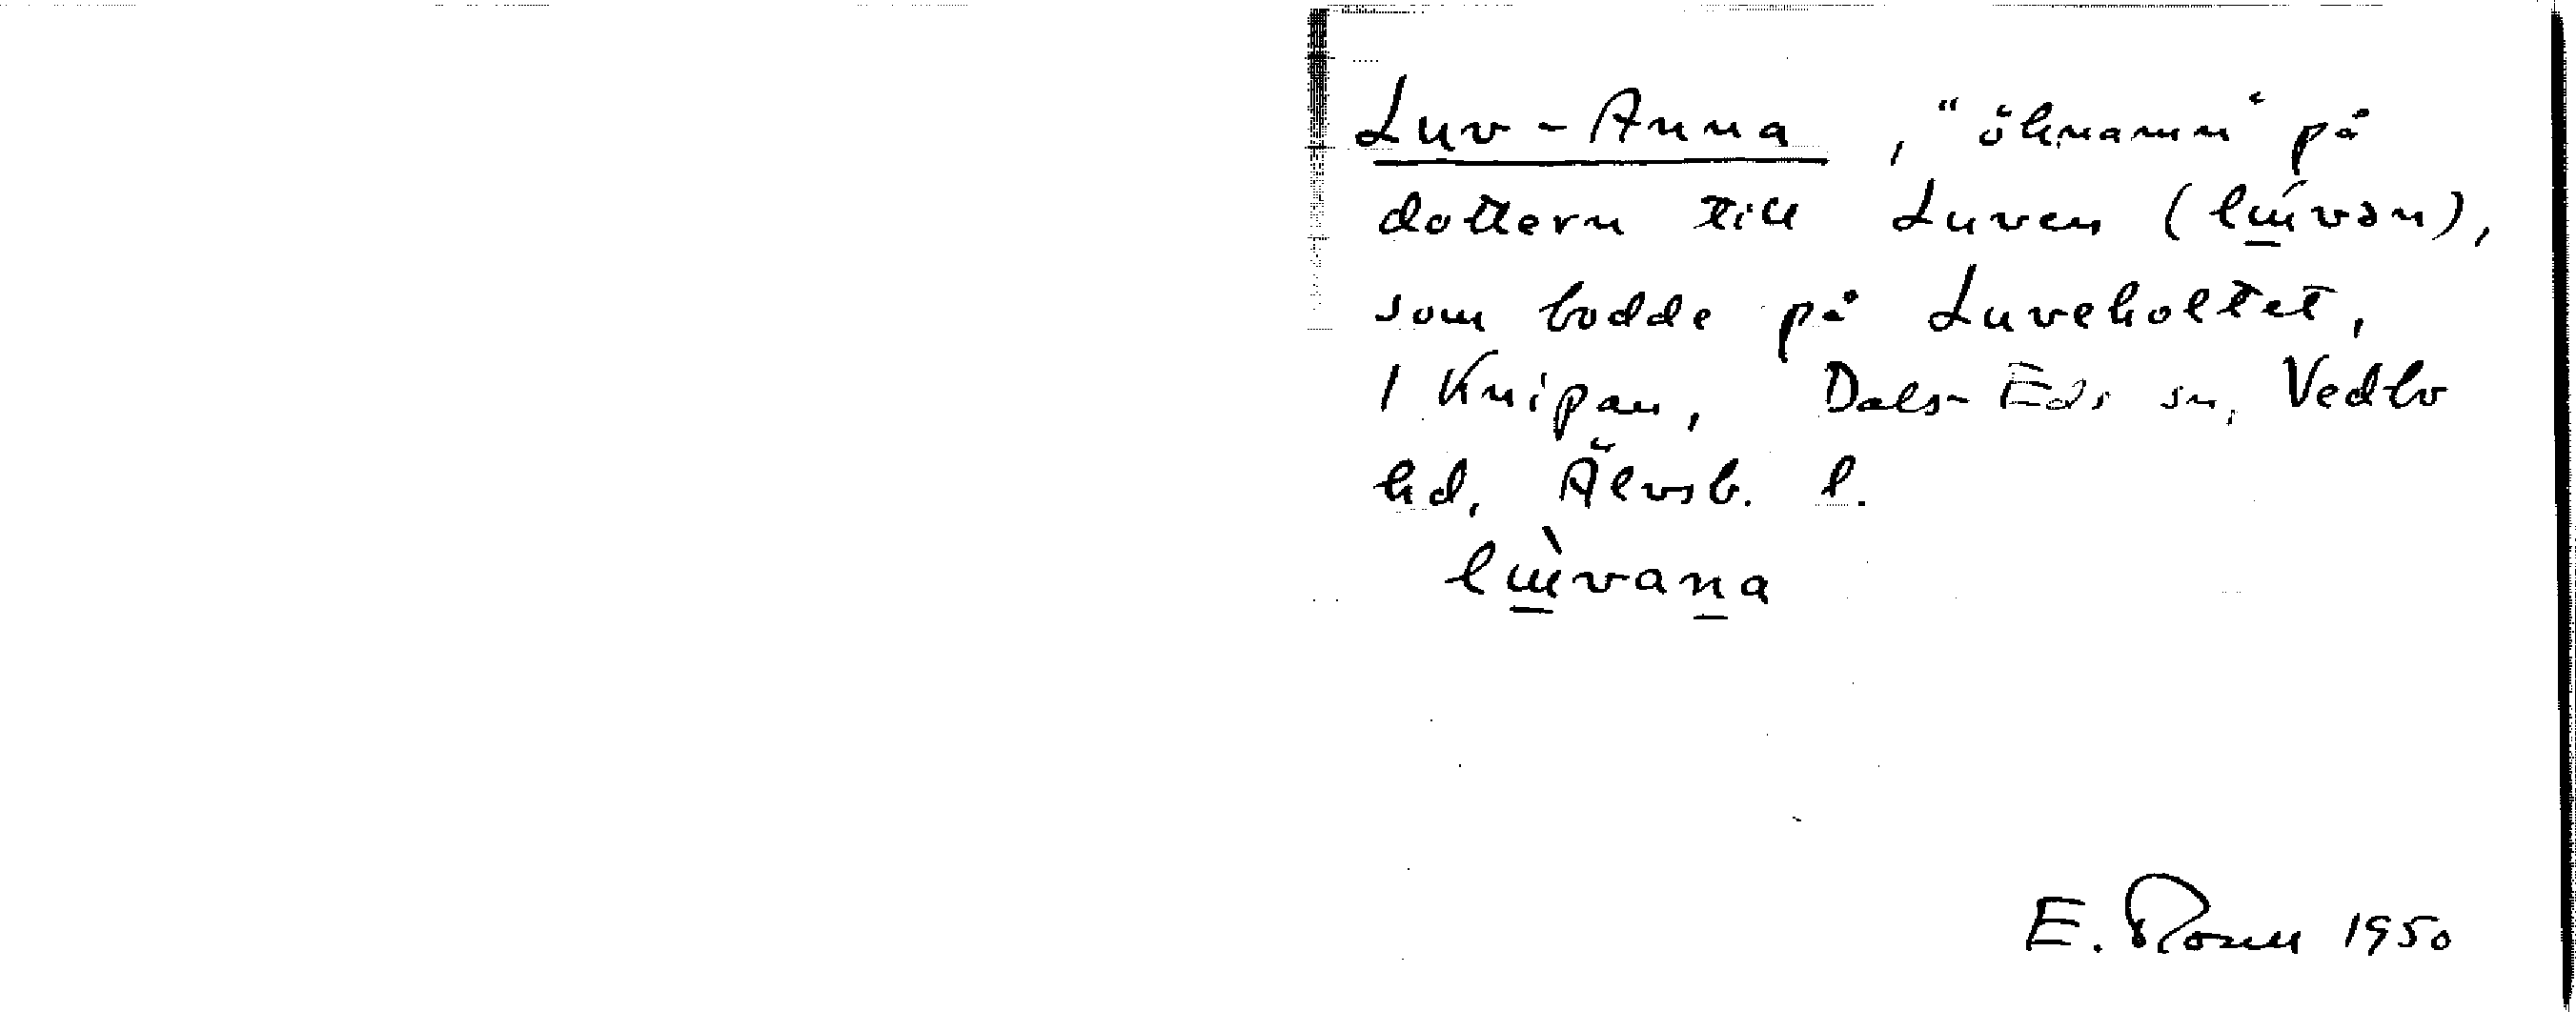 Luv-Anna, "öknamn" på
dottern till Luven (lɯ́vən),
som bodde på Luveholtet,
1 Knipan, Dals-Eds sn, Vedbo
hd, Älvsb. l.
lɯ̀vana
E. Rosell 1950